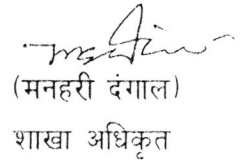 (मनहरी दंगाल)
शाखा अधिकृत